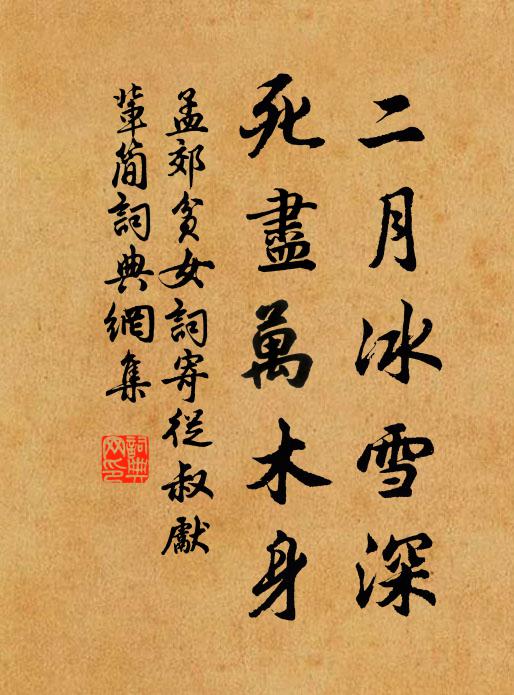 二月冰雪深
死盡萬木身
孟郊貧女詞寄從叔獻
輩簡詞典網集
詞典
网印